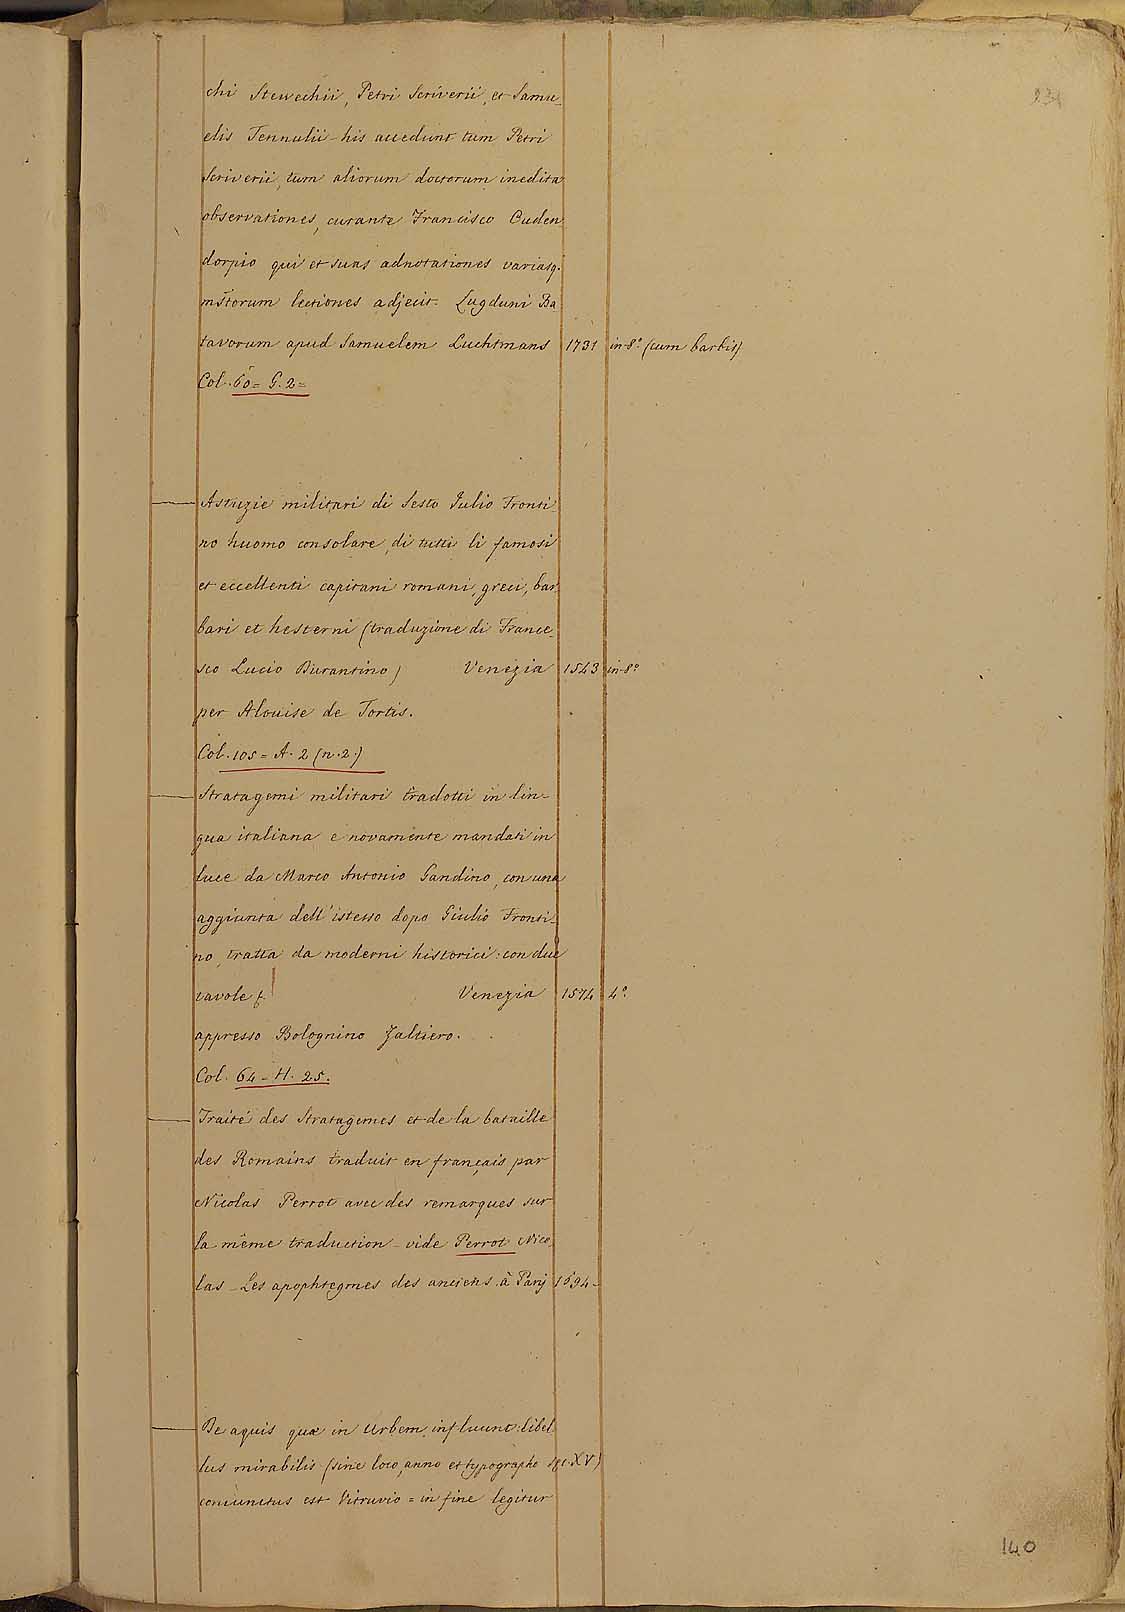 231
chi Stewechii, Petri Scriverii, et Samu_
elis Tennulii – his accedunt tum Petri
Scriverii, tum aliorum doctorum inedita
observationes, curante Francisco Ouden
dorpio qui et suas adnotationes variasq.
mstorum lectiones adjecit. Lugduni Ba
tavorum apud Samuelem Luchtmans 1731 in-8.° (cum barbis)
Col. 60 = G. 2 =
Astuzie militari di Sesto Julio Fronti
no huomo consolare, di tutti li famosi
et eccellenti capitani romani, greci, bar
bari et hesterni (traduzione di France_
sco Lucio Durantino) Venezia 1543 in-8.°
per Alouise de Tortis.
Col. 105 = A. 2 (n. 2.)
Stratagemi militari tradotti in lin-
gua italiana e novamente mandati in
luce da Marco Antonio Gandino, con una
aggiunta dell'istesso dopo Giulio Fronti-
no, tratta da moderni historici: con due
tavole f. Venezia 1574 4.°
appresso Bolognino Zaltiero.
Col. 64 – H. 25.
Traité des Stratagemes et de la bataille
des Romains traduit en français par
Nicolas Perrot avec des remarques sur
la même traduction – vide Perrot Nico_
las – Les apophtegmes des anciens. à Parij 1694 –
De aquis quæ in Urbem influunt: libel
lus mirabilis (sine loco, anno et typographo sec. XV)
coniunctus est Vitruvio = in fine legitur
140